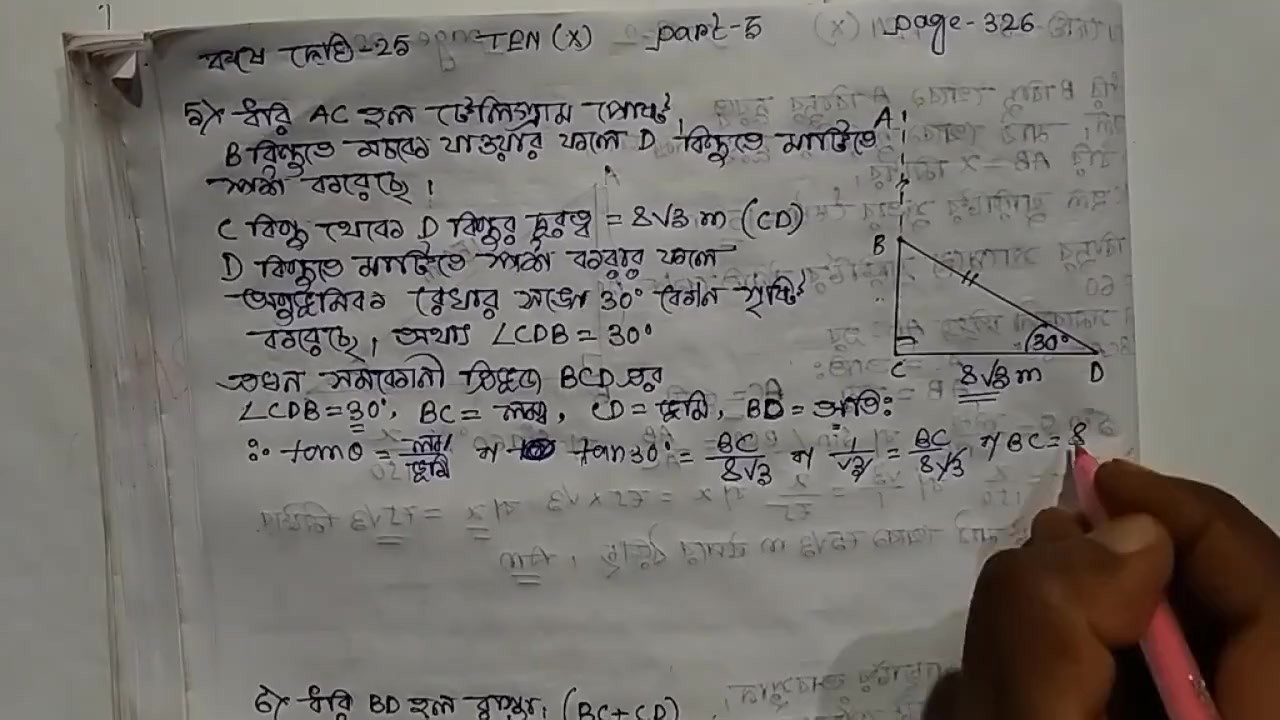 কষে দেখি-25 TEN (X) part-5 (X) page-326
5) ধরি AC হল টেলিগ্রাম পোস্ট,
B বিন্দুতে মচকে যাওয়ার ফলে D বিন্দুতে মাটিতে
স্পর্শ করেছে।
C বিন্দু থেকে D বিন্দুর দূরত্ব = 8√3 m (CD)
D বিন্দুতে মাটিতে স্পর্শ করার ফলে
অনুভূমিক রেখার সঙ্গে 30° কোণ সৃষ্টি
করেছে, অর্থাৎ ∠CDB = 30°
এখন সমকোনী ত্রিভুজ BCD এর
∠CDB = 30°, BC = লম্ব, CD = ভূমি, BD = অতিঃ
∴ tanθ = লম্ব/ভূমি বা tan30° = BC/8√3 বা 1/√3 = BC/8√3 বা BC = 8
A
B
30°
C 8√3 m D
6) ধরি BD হল রাস্তা, (BC+CD)